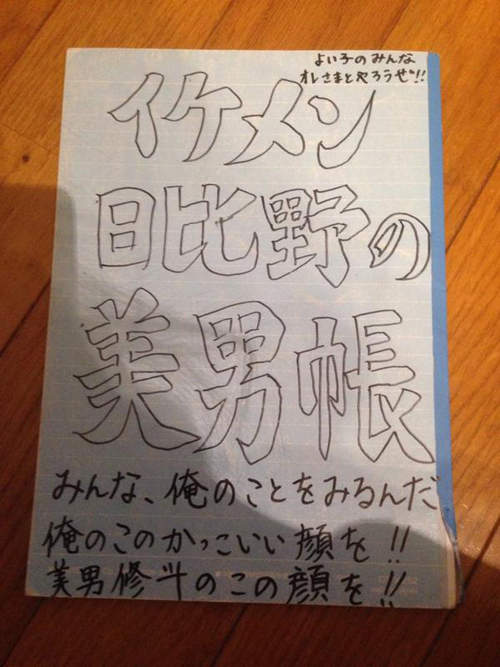 よい子のみんな
オレさまとやろうぜ!!
イケメン
日比野の
美男帳
みんな、俺のことをみるんだ
俺のこのかっこいい顔を!!
美男修斗のこの顔を!!